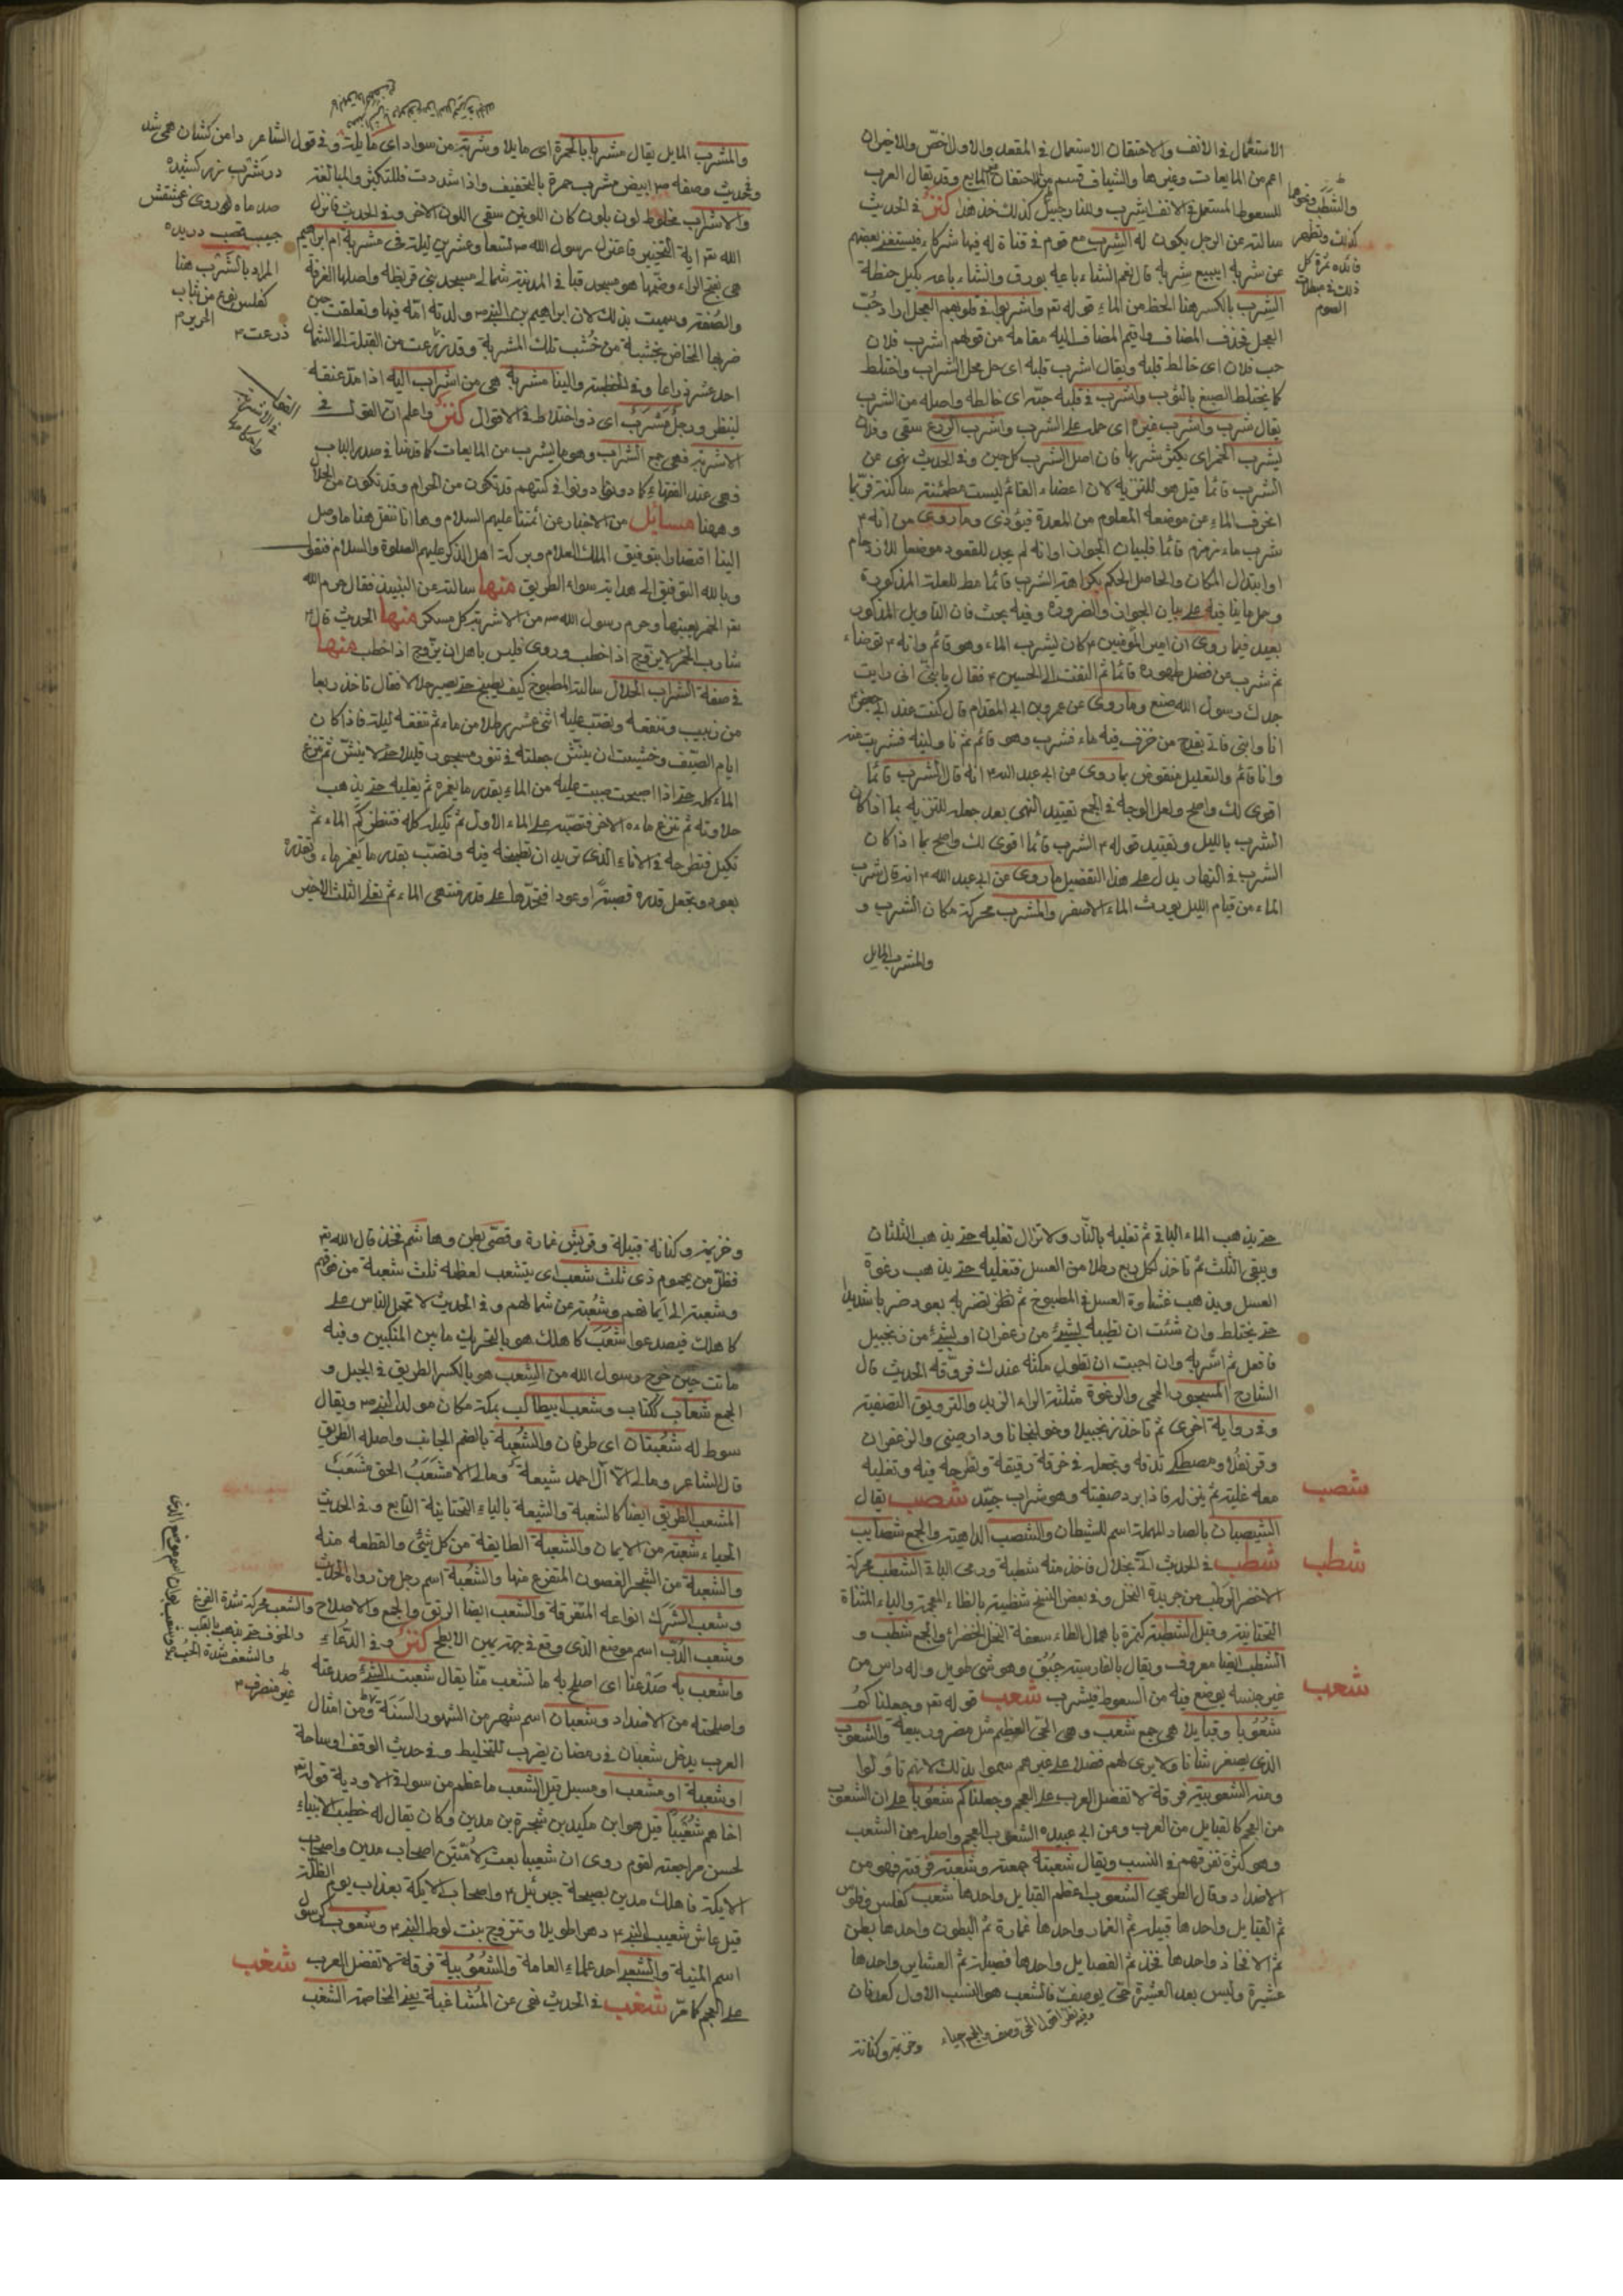 الاستعمال في الانف والاحتقان الاستعمال في المقعد والاول اخص والاخيران
اعم من المايعات وغيرها والشياف قسم من الاحتقان بالمايع وقد يقال العرب
للسعوط المستعمل في الانف اشرب كذلك خذ هذا كنز في الحديث
سالته عن الرجل يكون له الشرب مع قوم في قناة له فيها شركاء فيستغني بعضهم
عن شربه ايبيع شربه قال نعم ان شاء باعه بورق وان شاء باعه بكيل حنطة
الشرب بالكسر هنا الحظ من الماء قوله تع واشربوا في قلوبهم العجل اراد حب
العجل فحذف المضاف واقيم المضاف اليه مقامه من قولهم اشرب فلان
حب فلان اي خالط قلبه ويقال اشرب قلبه اي حل محل الشراب واختلط
كما يختلط الصبغ بالثوب واشرب في قلبه حبه اي خالطه واصله من الشرب
يقال شرب واشرب غيره اي حمله على الشرب واشرب الزرع سقى وفلان
يشرب الخمر اي يكثر شربها فان اصل الشرب كل حين وفي الحديث نهى عن
الشرب قائما قيل هو للتنزيه لان اعضاء القائم ليست مطمئنة ساكنة فربما
انحرف الماء عن موضعه المعلوم من المعدة فيؤذي وما روي من انه
شرب ماء زمزم قائما فلبيان الجواز او انه لم يجد للقعود موضعا للازدحام
او ابتلال المكان والحاصل الحكم بكراهة الشرب قائما مط للعلة المذكورة
وحمل ما ينافيه على بيان الجواز والضرورة وفيه بحث فان التاويل المذكور
بعيد فيما روي ان امير المؤمنين كان يشرب الماء وهو قائم وانه توضاء
ثم شرب من فضل طهوره قائما ثم التفت الى الحسين فقال يا بني اني رايت
جدك رسول الله صنع وما روي عن عمرو بن ابي المقدام قال كنت عند ابي جعفر
انا وابي فاتى بقدح من خزف فيه ماء فشرب وهو قائم ثم ناوله فشرب منه
وانا قائم والتعليل منقوض بما روي عن ابي عبد الله انه قال الشرب قائما
اقوى لك واصح ولعل الوجه في الجمع تقييد النهي بعد جعله للتنزيه بما اذا كان
الشرب بالليل وتقييد قوله الشرب قائما اقوى لك واصح بما اذا كان
الشرب في النهار يدل على هذا التفصيل ما روي عن ابي عبد الله انه قال شرب
الماء من قيام الليل يورث الماء الاصفر والمشرب محركة مكان الشرب و
والمشرب المايل
والمشرب المايل يقال مشربا بالحمرة اي مايلا وشربة من سواد اي مايلة وفي قول الشاعر
وفي حديث وصفه ابيض مشرب حمرة بالتخفيف واذا شددت فللتكثير والمبالغة
والاشراب مخلوط لون بلون كان اللونين سقى اللون الاخر وفي الحديث فانزل
الله تع اية التخيير فاعتزل رسول الله تسعا وعشرين ليلة في مشربة ام ابراهيم
هي بفتح الراء وضمها هو مسجد قبا في المدينة شمالي مسجد بني قريظة واصلها الغرفة
والصفة وسميت بذلك لان ابراهيم بن النبي ولدته امه فيها وتعلقت حين
ضربها المخاض بخشبة من خشب تلك المشربة وقد ذرعت من القبلة الى الشمال
احد عشر ذراعا وفي الخطبة والينا مشربة هي من اشراب اليه اذا مد عنقه
لينظر ورجل مشرب اي ذو اختلاط في الاقوال كنز واعلم ان القول في
الاشربة فهي جمع الشراب وهو ما يشرب من المايعات كما قدمنا في صدر الباب
فهي عند الفقهاء كما دونوا في كتبهم قد تكون من الحرام وقد تكون من الحلال
وههنا مسائل من الاخبار عن ائمتنا عليهم السلام وها انا ننقل هنا ما وصل
الينا اقتصارا بتوفيق الملك العلام وبركة اهل الذكر عليهم الصلوة والسلام فنقول
وبالله التوفيق الى هداية سواء الطريق منها سالته عن النبيذ فقال حرم الله
تع الخمر بعينها وحرم رسول الله من الاشربة كل مسكر منها الحديث قال
شارب الخمر لا يزوج اذا خطب وروي فليس باهل ان يزوج اذا خطب منها
في صفة الشراب الحلال سالته المطبوخ كيف يطبخ حتى يصير حلالا فقال تاخذ ربعا
من زبيب وتنقعه وتصب عليه اثنى عشر رطلا من ماء ثم تنقعه ليلة فاذا كان
ايام الصيف وخشيت ان ينش جعلته في تنور مسجور قليلا حتى لا ينش ثم تنزع
الماء كله حتى اذا اصبحت صببت عليه من الماء بقدر ما يغمره ثم يغليه حتى يذهب
حلاوته ثم تنزع ماءه الاخر فتصبه على الماء الاول ثم تكيله كله فتنظر كم الماء ثم
تكيل فتطرحه في الاناء الذي تريد ان تطبخه فيه وتصب بقدر ما يغمرها وتقدره
بعود وتجعل قدره قصبة او عودا فتحدها على قدر منتهى الماء ثم يغلي الثلث الاخير
حتى يذهب الماء الباقي ثم تغليه بالنار ولا تزال تغليه حتى يذهب الثلثان
ويبقى الثلث ثم تاخذ لكل ربع رطلا من العسل فتغليه حتى يذهب رغوة
العسل ويذهب غشاوة العسل في المطبوخ ثم تضربه بعود ضربا شديدا
حتى يختلط وان شئت ان تطيبه بشيء من زعفران او بشيء من زنجبيل
فافعل ثم اشربه وان احببت ان يطول مكثه عندك فروقه الحديث قال
الشارح المسجور المحمى والرغوة مثلثة الراء الزبد والترويق التصفية
وفي رواية اخرى ثم تاخذ زنجبيلا وخولنجانا ودارصيني والزعفران
وقرنفلا ومصطكي تدقه وتجعله في خرقة رقيقة وتطرحه فيه وتغليه
معه غلية ثم ينزله فاذا برد صفيته وهو شراب جيد شصب يقال
الشيصبان بالصاد المهملة اسم للشيطان والشصب الداهية والجمع شصايب
شطب في الحديث فاخذ منه شطبة ورمى الباقي الشطب محركة
الاخضر الرطب من جريدة النخل وفي بعض النسخ شظية بالظاء المعجمة والياء المثناة
التحتانية وقيل الشطبة كتمرة باهمال الطاء سعفة النخل الخضراء والجمع شطب و
الشطب ايضا معروف ويقال بالفارسية چبق وهو شيء طويل وله راس من
غير جنسه يوضع فيه من السعوط فيشرب شعب قوله تع وجعلناكم
شعوبا وقبايلا هي جمع شعب وهي الحي العظيم مثل مضر وربيعة والشعوب
الذي يصغر شانا ولا يرى لهم فضلا على غيرهم سموا بذلك لانهم تاولوا
ومنه الشعوبية فرقة لا تفضل العرب على العجم وجعلناكم شعوبا على ان الشعوب
من العجم كالقبايل من العرب وعن ابي عبيده الشعوب العجم واصله من الشعب
وهو كثرة تفرقهم في النسب ويقال شعبته جمعته وشعبته فرقته فهو من
الاضداد وقال الطريحي الشعوب اعظم القبايل واحدها شعب كفلس وفلوس
ثم القبايل واحدها قبيلة ثم العماير واحدها عمارة ثم البطون واحدها بطن
ثم الافخاذ واحدها فخذ ثم الفصايل واحدها فصيلة ثم العشاير واحدها
عشيرة وليس بعد العشيرة حي يوصف فالشعب هو النسب الاول كعدنان
وخزيمة وكنانة
شصب
شطب
شعب
وخزيمة وكنانة قبيلة وقريش عمارة وقصي بطن وهاشم فخذ قال الله تع
فظل من يحموم ذي ثلث شعب اي يتشعب لعظمه ثلث شعبة من فوقهم
وشعبة الى ايمانهم وشعبة عن شمالهم وفي الحديث لا تحمل الناس على
كاهلك فيصدعوا شعب كاهلك هو بالتحريك ما بين المنكبين وفيه
ماتت حين خرج رسول الله من الشعب هو بالكسر الطريق في الجبل و
الجمع شعاب ككتاب وشعب ابيطالب بمكة مكان مولد النبي ويقال
سوط له شعبتان اي طرفان والشعبة بالضم الجانب واصله الطريق
قال الشاعر ومالي الا آل احمد شيعة ومالي الا مشعب الحق مشعب
المشعب الطريق ايضا كالشعبة والشيعة بالياء التحتانية التابع وفي الحديث
الحياء شعبة من الايمان والشعبة الطايفة من كل شيء والقطعة منه
والشعبة من الشجر الغصون المتفرع منها والشعبة اسم رجل من رواة الحديث
وشعب الشرك انواعه المتفرقة والشعب ايضا الرتق والجمع والاصلاح
وشعب الدب اسم موضع الذي وقع في جهة يمين الابطح كنز وفي الدعاء
واشعب به صدعنا اي اصلح به ما تشعب منا يقال شعبت الشيء صدعته
واصلحته من الاضداد وشعبان اسم شهر من الشهور السنة ومن امثال
العرب يدخل شعبان في رمضان يضرب للتخليط وفي حديث الوقف او ساحة
او شعبة او مشعب او مسيل قيل الشعب ما عظم من سواقي الاودية قوله تع
اخاهم شعيبا قيل هو ابن مكيد بن شجرة بن مدين وكان يقال له خطيب الانبياء
لحسن مراجعته لقوم روى ان شعيبا بعث لامتين اصحاب مدين واصحاب
الايكة فاهلك مدين بصيحة جبرئيل واصحاب الايكة بعذاب يوم الظلة
قيل عاش شعيب النبي دهرا طويلا وتزوج بنت لوط النبي وشعوب كرسول
اسم المنية والشعبي احد علماء العامة والشعوبية فرقة لا تفضل العرب
على العجم كما مر شغب في الحديث نهى عن المشاغبة يعني المخاصمة الشغب
شغب